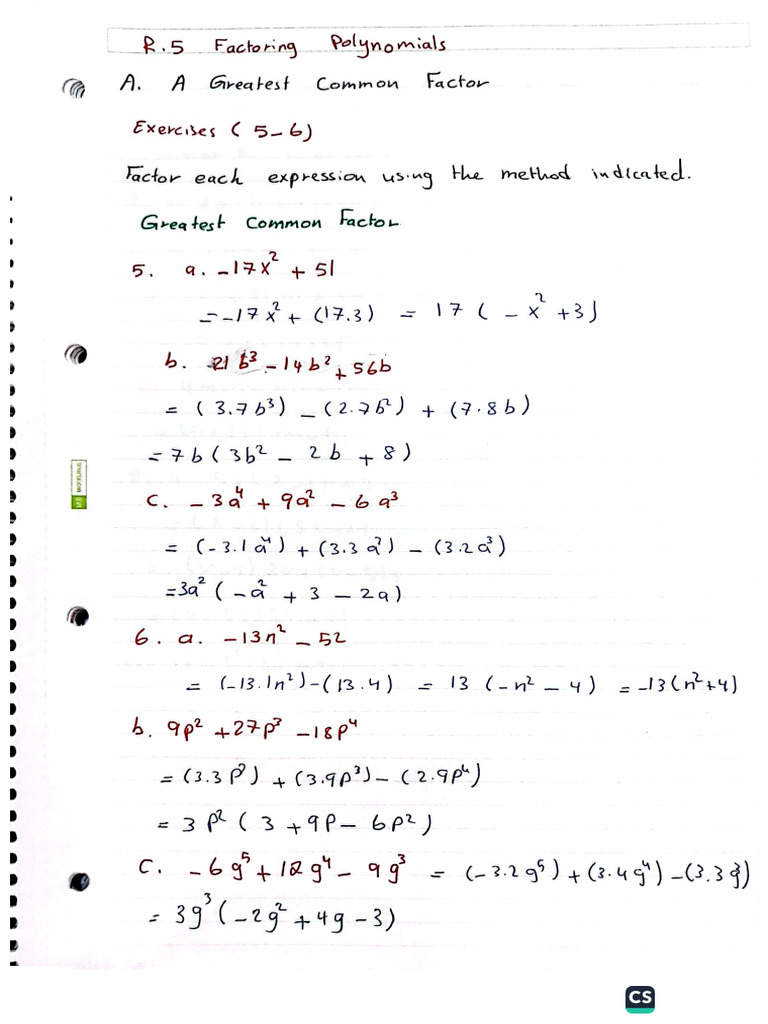 R.5 Factoring Polynomials
A. A Greatest Common Factor
Exercises (5-6)
Factor each expression using the method indicated.
Greatest Common Factor
5. a. -17x² + 51
= -17x² + (17.3) = 17 (-x² + 3)
b. 21b³ - 14b² + 56b
= (3.7b³) - (2.7b²) + (7.8b)
= 7b (3b² - 2b + 8)
c. -3a⁴ + 9a² - 6a³
= (-3.1a⁴) + (3.3a²) - (3.2a³)
= 3a² (-a² + 3 - 2a)
6. a. -13n² - 52
= (-13.1n²) - (13.4) = 13 (-n² - 4) = -13(n²+4)
b. 9p² + 27p³ - 18p⁴
= (3.3p²) + (3.9p³) - (2.9p⁴)
= 3p² (3 + 9p - 6p²)
c. -6g⁵ + 12g⁴ - 9g³ = (-3.2g⁵) + (3.4g⁴) - (3.3g³)
= 3g³ (-2g² + 4g - 3)
CS